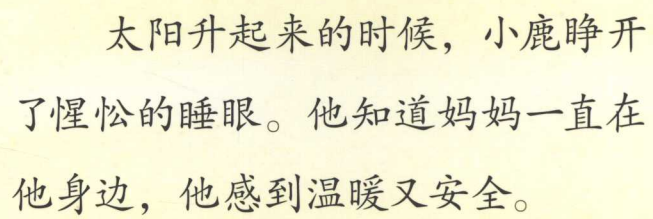 太阳升起来的时候，小鹿睁开
了惺忪的睡眼。他知道妈妈一直在
他身边，他感到温暖又安全。